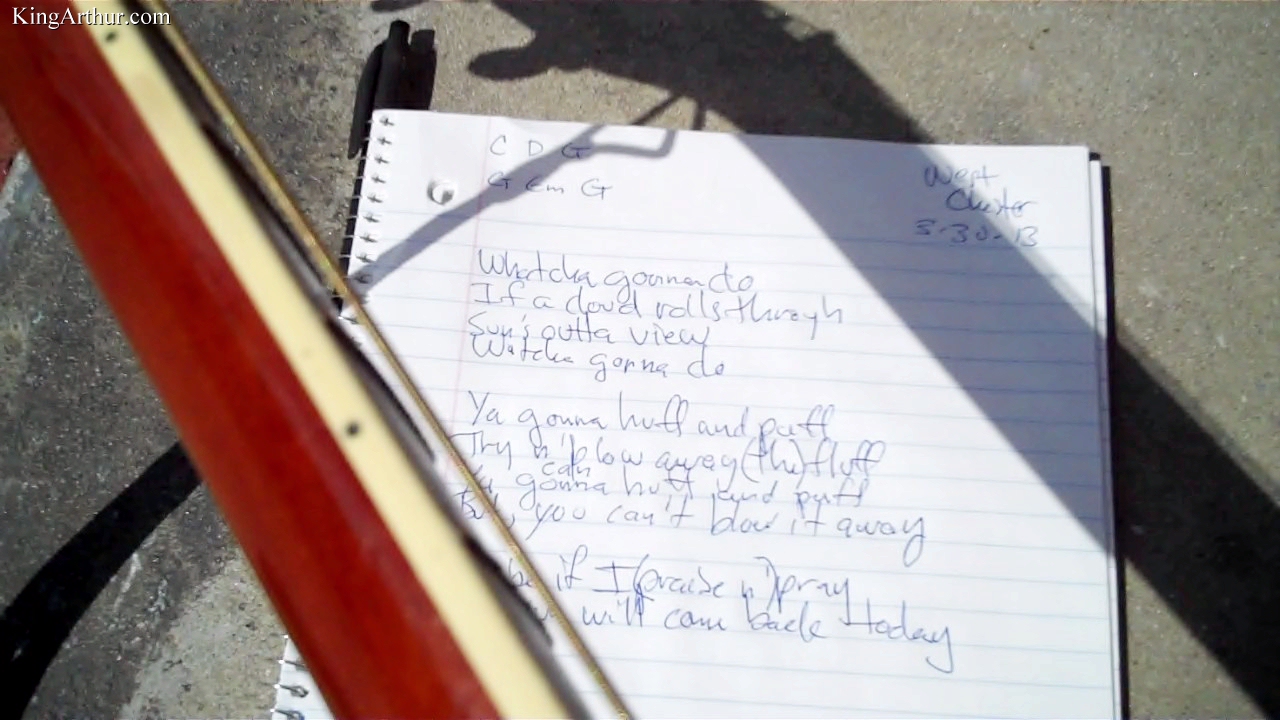 KingArthur.com
C D G
G Em G
West
Chester
3-30-13
Whatcha gonna do
If a cloud rolls through
Sun's outta view
Watcha gonna do
Ya gonna huff and puff
Try n' blow away (the) fluff
can
Ya gonna huff and puff
But, you can't blow it away
if I (praise n') pray
will come back today